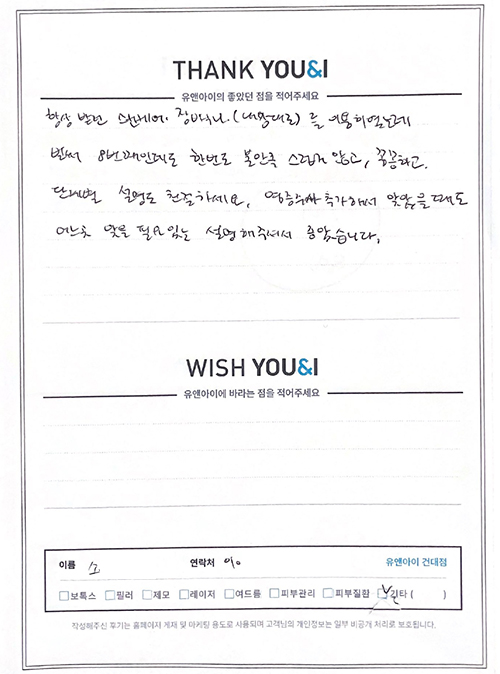 THANK YOU&I
유앤아이의 좋았던 점을 적어주세요
항상 받던 스킨케어. (내맘대로) 를 이용하였는데
벌써 8번째인데도 한번도 불만족 스럽지 않고, 꼼꼼하고.
단계별 설명도 친절하세요, 염증주사 추가해서 맞았을때도
맞을 필요있는 설명해주셔서 좋았습니다.
WISH YOU&I
유앤아이에 바라는 점을 적어주세요
이름 조 연락처 010 유앤아이 건대점
보톡스 필러 제모 레이저 여드름 피부관리 피부질환 기타 ( )
작성해주신 후기는 홈페이지 게재 및 마케팅 용도로 사용되며 고객님의 개인정보는 일부 비공개 처리로 보호됩니다.